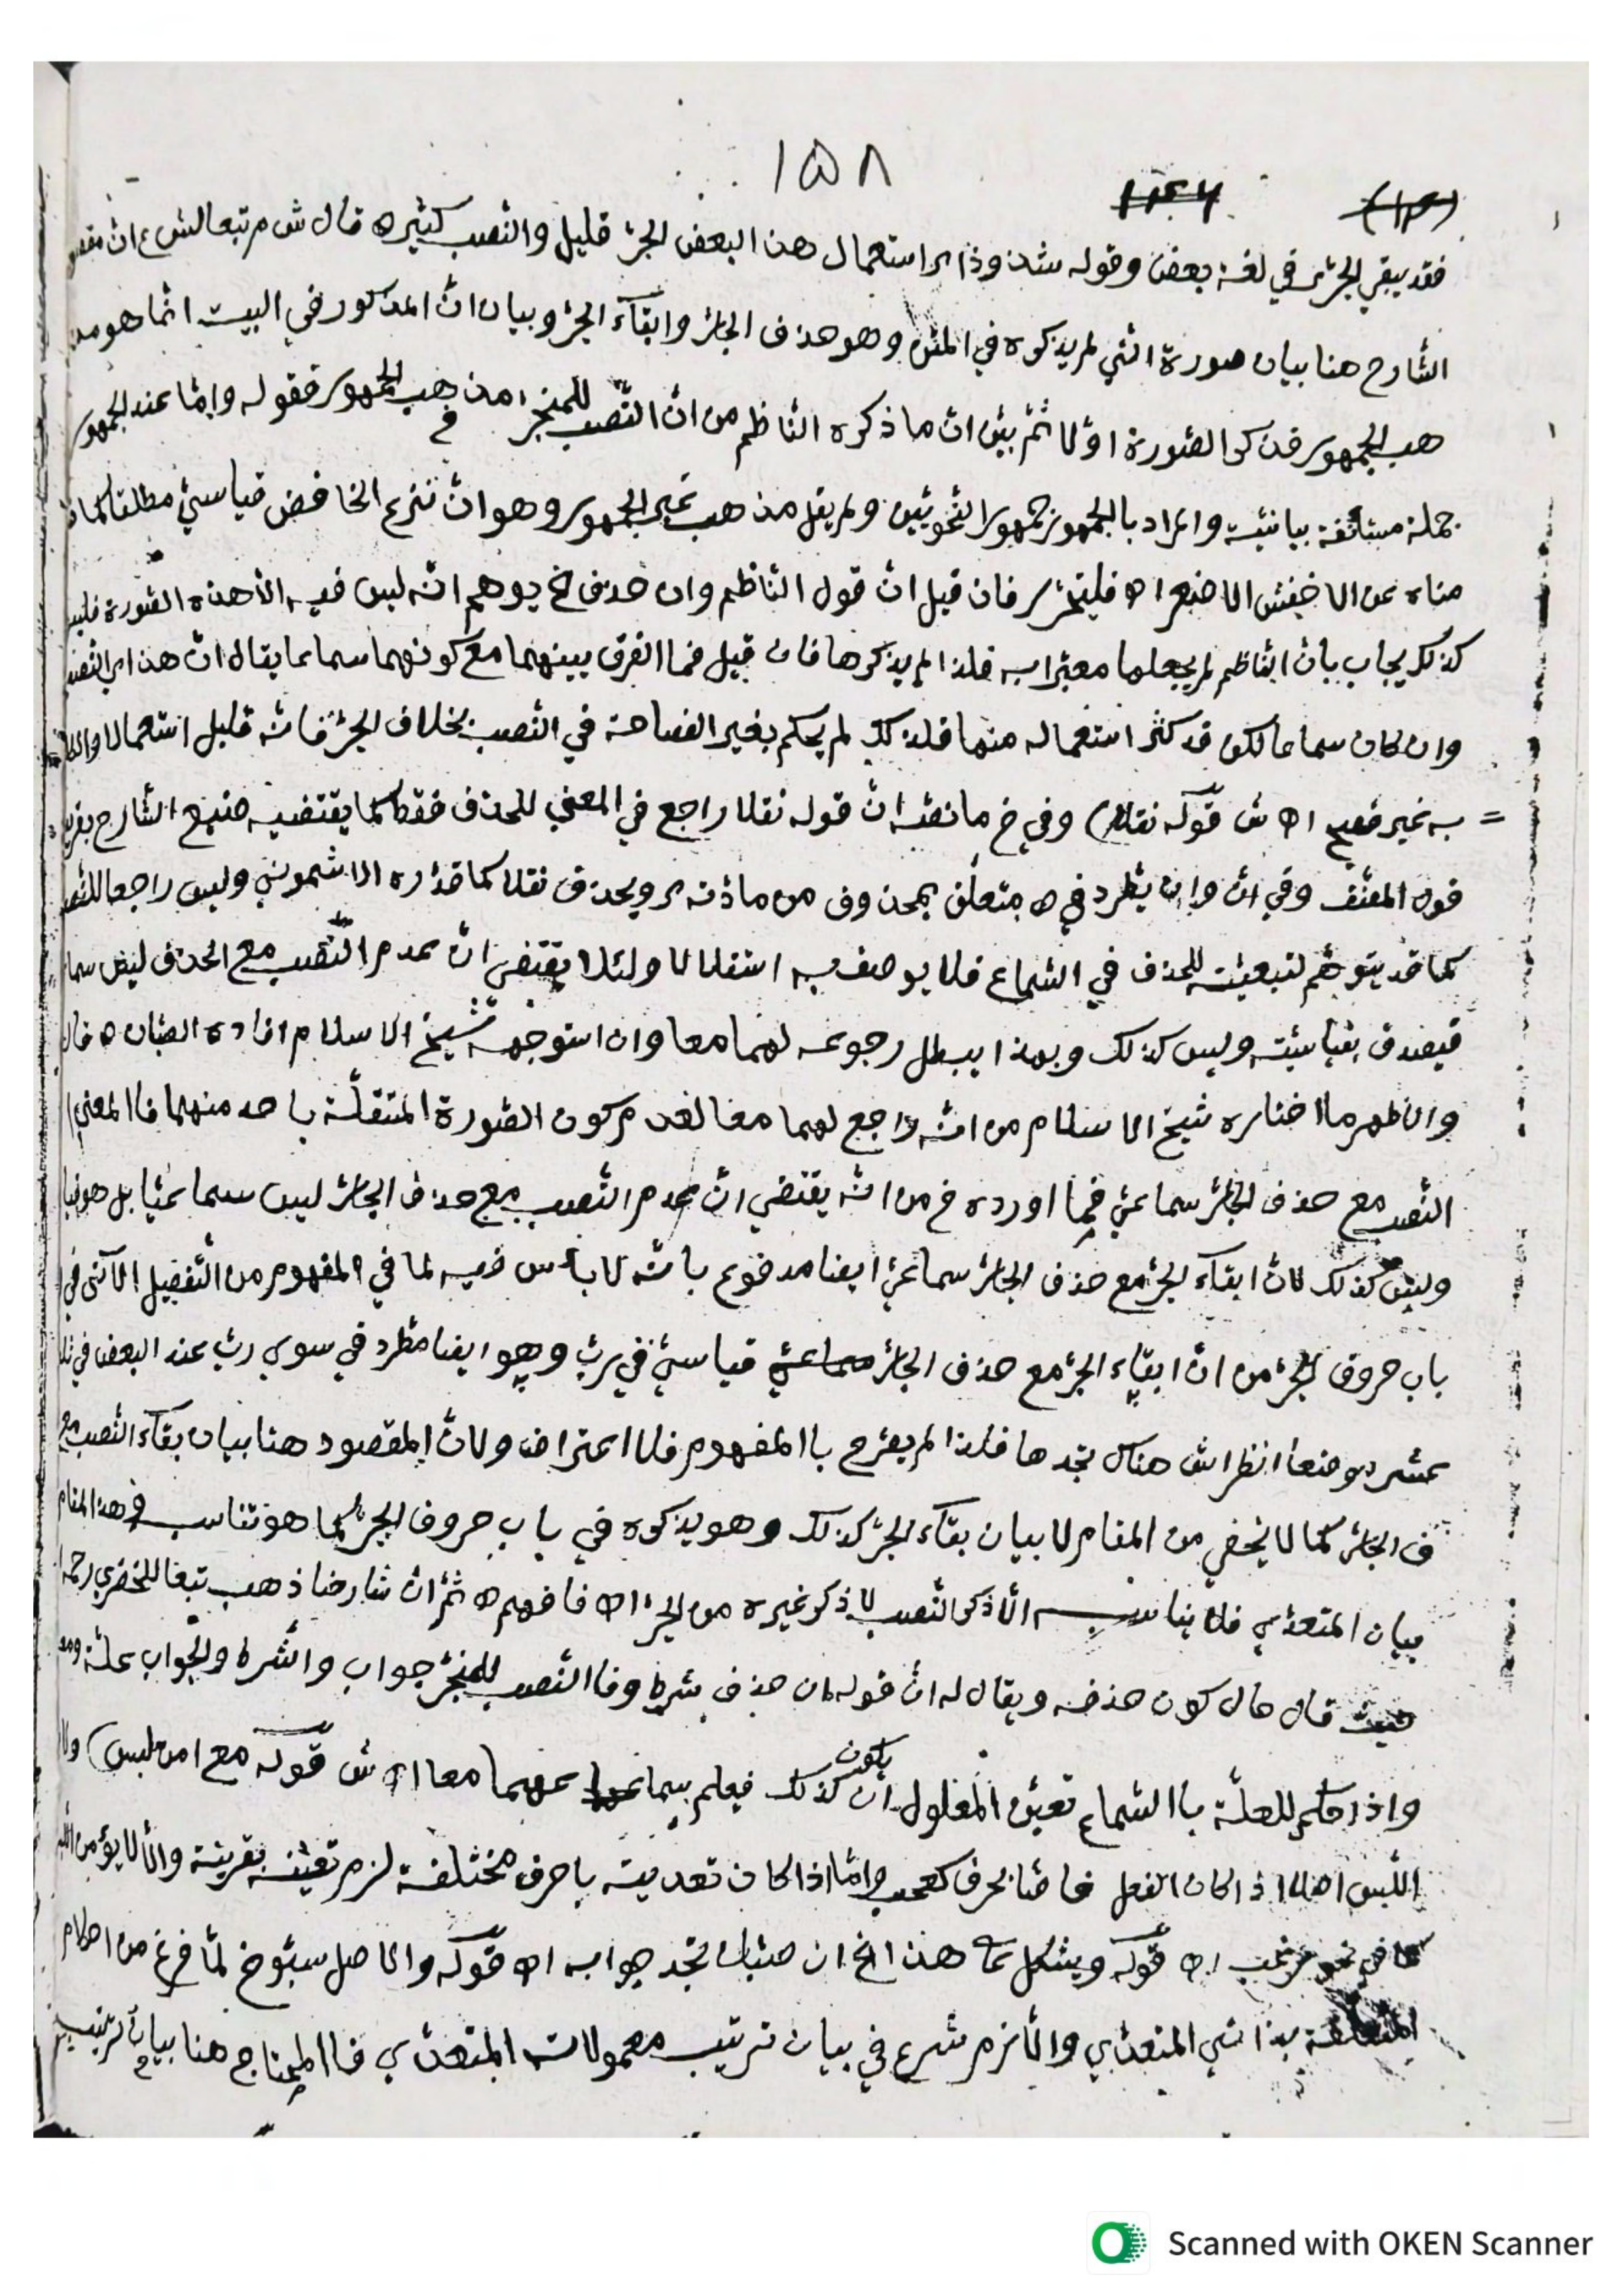 ١٥٨
فقد يبقي الجرّ في لغة بعض وقوله شذوذا اي استعمال هذا البعض الجرّ قليل والنّصب كثير ه قال ش م تبعا لش ع انّ مقصو
الشّارح هنا بيان صورة الّتي لم يذكره في المتن وهو حذف الجارّ وابقآء الجرّ وبيان انّ المذكور في البيت انّما هو مذ
هب الجمهور فذكر الصّورة اوّلا ثمّ بيّن انّ ما ذكره النّاظم من انّ النّصب للمنجرّ مذهب الجمهور فقوله وامّا عند الجمهور
جملة مستأنفة بيانيّة والمراد بالجمهور جمهور النّحويّين ولم يقل مذهب غير الجمهور وهو انّ نزع الخافض قياسيّ مطلقا كما
عن الاخفش الاصغر اه فليتحرّر فان قيل انّ قول النّاظم وان حذف خ يوهم انّه ليس فيه الّا هذه الصّورة فليس
كذلك يجاب بانّ النّاظم لم يجعلها معتبرا به فلذا لم يذكرها فان قيل فما الفرق بينهما مع كونهما سماعا يقال انّ هذا اي النّصب
وان كان سماعا لكن قد كثر استعماله منها فلذلك لم يحكم بغير الفصاحة في النّصب بخلاف الجرّ فانّه قليل استعمالا
به غير فصيح اه ش قوله نقلا) وفي خ ما نصّه انّ قوله نقلا راجع في المعني للحذف فقط كما يقتضيه صنيع الشّارح
قول المصنّف وفي انّ وان يطّرد في ه متعلّق بمحذوف من مادّته اي ويحذف نقلا كما قدّره الاشموني وليس راجعا للنّصب
كما قد يتوهّم لتبعيّته للحذف في السّماع فلا يوصف به استقلالا ولئلا يقتضي انّ عدم النّصب مع الحذف ليس سما
فيصدق بقياسيّته وليس كذلك وبهذا يبطل رجوعه لهما معا وان استوجهه شيخ الاسلام افاده الصّبّان ه قال
والاظهر ما اختاره شيخ الاسلام من انّه راجع لهما معا لعدم كون الصّورة المتعلّقة باحد منهما فالمعني
النّصب مع حذف الجارّ سماعيّ فما اورده خ من انّه يقتضي انّ عدم النّصب مع حذف الجارّ ليس سماعيّا بل هو قيا
وليس كذلك لانّ ابقآء الجرّ مع حذف الجارّ سماعيّ ايضا مدفوع بانّه لا باس فيه لما في المفهوم من التّفصيل الآتي في
باب حروف الجرّ من انّ ابقآء الجرّ مع حذف الجارّ قياسيّ في ربّ وهو ايضا مطّرد في سوي ربّ عند البعض في ثلا
عشر موضعا انظر اش هناك تجدها فلذا لم يصرّح بالمفهوم فلا اعتراض ولانّ المقصود هنا بيان بقآء النّصب مع
ف الجارّ كما لا يخفي من المقام لا بيان بقآء الجرّ كذلك وهو يذكره في باب حروف الجرّ كما هو تناسب في هذا المقام
بيان المتعدّي فلا يناسب الّا ذكر النّصب لا ذكر غيره من الجرّ اه فافهم ه ثمّ انّ شارحنا ذهب تبعا للخضري رحمه
حيث قال حال كون حذفه ويقال له انّ قوله ان حذف شرط وفالنّصب للمنجرّ جواب والشّرط والجواب علّة
واذا حكم للعلّة بالسّماع تعيّن المعلول ان يكون كذلك فيعلم سما عنهما معا اه ش قوله مع امن لبس)
اللّبس اذا كان الفعل بحرف كعجب وامّا اذا كان تعديته باحرف مختلفة لزم تعيّنه بقرينة والّا لا يؤمن
كما في نحو رغب اه قوله ويشكل علي هذا الخ ان صبّان تجد جوابه اه قوله والاصل سبق خ لمّا فرغ من احكام
المتعلّقة بذاتي المتعدّي والّلازم شرع في بيان ترتيب معمولات المتعدّي فالمحتاج هنا بيان ترتيب
Scanned with OKEN Scanner